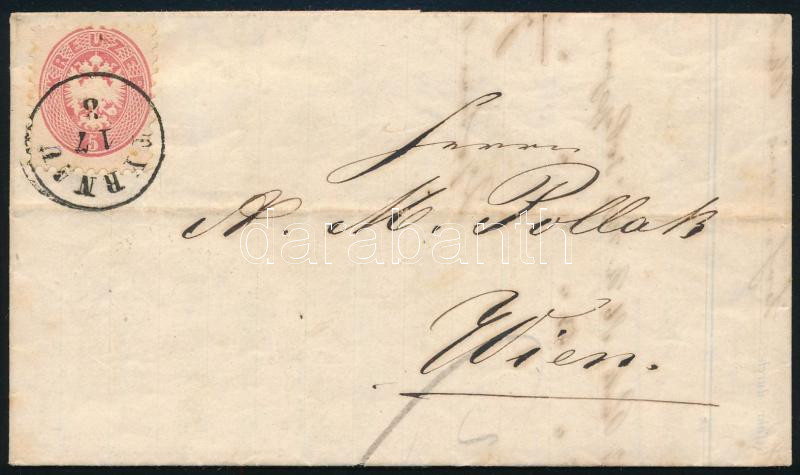 KREUZER
5
TYRNAU
17
8
Herrn
A. M. Pollak
Wien.
darabanth